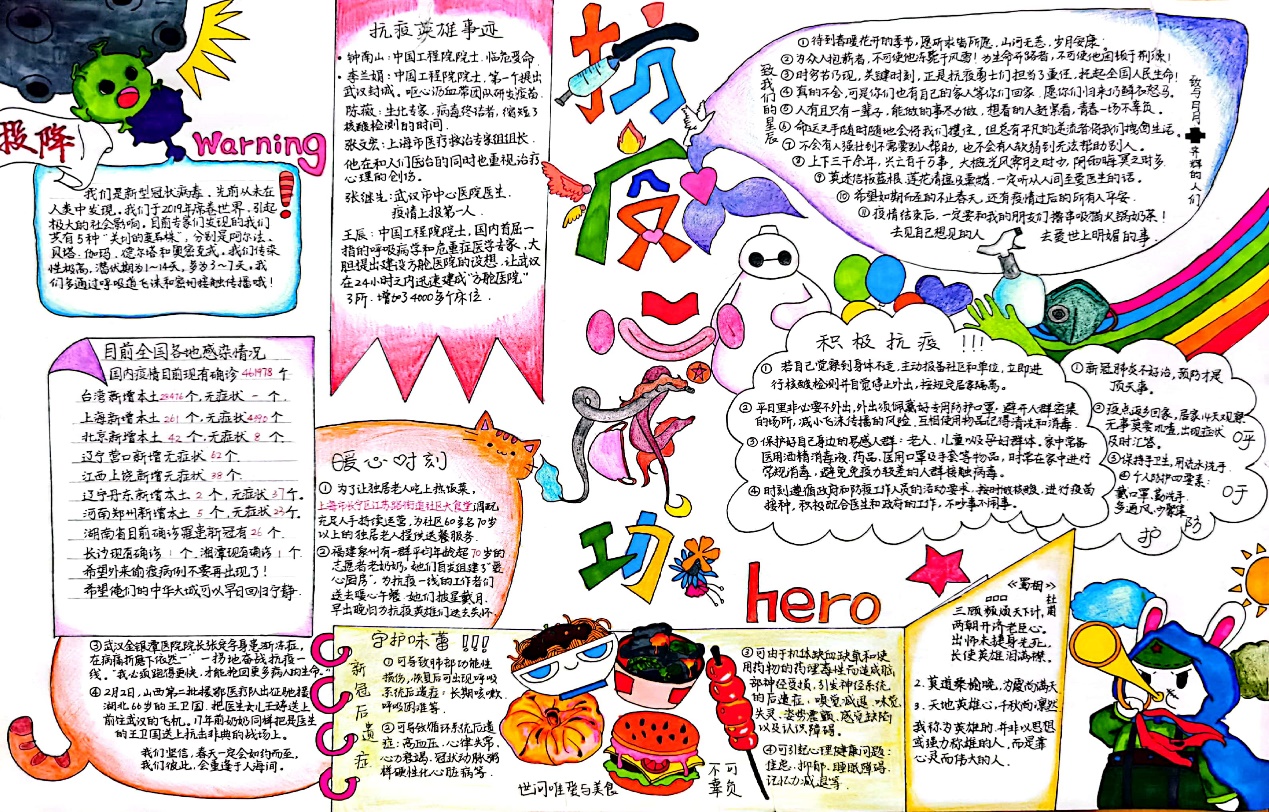 投降
Warning
我们是新型冠状病毒，先前从未在
人类中发现。我们于2019年席卷世界，引起
极大的社会影响。目前专家们发现的我们
共有5种“关切的变异株”，分别是阿尔法、
贝塔、伽玛、德尔塔和奥密克戎。我们传染
性极高，潜伏期为1～14天，多为3～7天。我
们多通过呼吸道飞沫和密切接触传播哦！
抗疫英雄事迹
·钟南山：中国工程院院士，临危受命.
·李兰娟：中国工程院院士，第一个提出
武汉封城。呕心沥血带团队研发疫苗.
陈薇：生化专家，病毒终结者，缩短了
核酸检测的时间.
张文宏：上海市医疗救治专家组组长.
他在和人们医治的同时也重视治疗
心理的创伤。
张继先：武汉市中心医院医生.
疫情上报第一人.
王辰：中国工程院院士，国内首屈一
指的呼吸病学和危重症医学专家，大
胆提出建设方舱医院的设想.让武汉
在24小时之内迅速建成“方舱医院”
3所.增加了4000多个床位.
抗疫必功
致我们的星辰
①待到春暖花开的季节，愿所求皆所愿.山河无恙，岁月安康.
②为众人抱薪者，不可使他冻毙于风雪！为生命开路者，不可使他困扼于荆棘！
③时穷节乃现，关键时刻，正是抗疫勇士们担当了重任，托起全国人民生命！
④真的不会，可是你们也有自己的家人等你们回家.愿你们归来仍鲜衣怒马。
⑤人有且只有一辈子，能做的事尽力做，想看的人赶紧看，青春一场不辜负。
⑥命运之手随时随地会将我们攫住，但总有平凡的逆流者将我们拽回生活。
⑦不会有人强壮到不需要别人帮助，也不会有人软弱到无法帮助别人。
⑧上下三千余年，兴亡百千万事，大抵光风霁月之时少，阴雨晦冥之时多.
⑨莫迷信板蓝根，莲花清瘟及熏醋，一定听从人间至爱医生的话。
⑩希望如期而至的不止春天，还有疫情过后的所有人平安.
⑪疫情结束后，一定要和我的朋友们撸串吸猫火锅奶茶！
去见自己想见的人 去爱世上明媚的事.
致与日月齐辉的人们
目前全国各地感染情况
国内疫情目前现有确诊461978个
台湾新增本土28416个，无症状－个.
上海新增本土261个，无症状4390个
北京新增本土42个，无症状8个
辽宁营口新增无症状62个
江西上饶新增无症状38个.
辽宁丹东新增本土2个，无症状37个.
河南郑州新增本土5个，无症状23个.
湖南省目前确诊罹患新冠有26个.
长沙现有确诊1个.湘潭现有确诊1个
希望外来偷疫病例不要再出现了！
希望俺们的中华大城可以早日回归宁静.
暖心♡时刻
①为了让独居老人吃上热饭菜，
上海市长宁区江苏路街道社区大食堂调配
充足人手持续运营，为社区60多名70岁
以上的独居老人提供送餐服务.
②福建泉州有一群平均年龄超70岁的
志愿者老奶奶，她们自发组建了“爱
心厨房”，为抗疫一线的工作者们
送去暖心午餐.她们披星戴月.
早出晚归为抗疫英雄们送去关怀.
③武汉金银潭医院院长张定宇身患渐冻症，
在病痛折磨下依然一 一拐地奋战抗疫一
线。“我必须跑得更快，才能抢回更多病人的生命.”
④2月2日，山西第二批援鄂医疗队出征驰援
湖北.66岁的王卫国，把医生女儿王婧送上
前往武汉的飞机。17年前奶奶同样把是医生
的王卫国送上抗击非典的战场上。
我们坚信，春天一定会如约而至，
我们彼此，会重逢于人海间。
积极抗疫 !!!
①若自己觉察到身体不适，主动报备社区和单位，立即进
行核酸检测并自觉停止外出，按规定居家隔离。
②平日里非必要不外出，外出须佩戴好专用防护口罩，避开人群密集
的场所，减小飞沫传播的风险.互相使用物品记得清洗和消毒.
③保护好自己身边的易感人群：老人、儿童以及孕妇群体，家中常备
医用酒精消毒液、药品，医用口罩及手套等物品，时常在家中进行
常规消毒，避免免疫力较差的人群接触病毒。
④时刻遵循政府和防疫工作人员的活动要求，按时做核酸，进行疫苗
接种，积极配合医生和政府的工作，不吵事不闹事。
①新冠肺炎不好治，预防才是
顶天事。
②疫点返乡回家，居家14天观察
无事莫要乱逛，出现症状
及时汇答。
③保持手卫生，用洗水洗手.
④个人防护四要素：
戴口罩，勤洗手.
多通风，少聚集
呼吁防护
hero
守护味蕾!!!
新冠后遗症
①可导致肺部功能性
损伤，恢复后可出现呼吸
系统后遗症：长期咳嗽.
呼吸困难等.
②可导致循环系统后遗
症：高血压、心律失常、
心力衰竭、冠状动脉粥
样硬性化心脏病等.
世间唯爱与美食
不可辜负
③可由于机体缺血缺氧和使
用药物的药理毒性而造成脑
部神经受损，引发神经系统
的后遗症，嗅觉减退、味觉
失灵、姿势震颤、感觉缺陷
以及认识障碍。
④可引起心理健康问题：
焦虑、抑郁、睡眠障碍、
记忆力减退等.
《蜀相》
杜甫
三顾频烦天下计，
两朝开济老臣心。
出师未捷身先死，
长使英雄泪满襟。
2.莫道桑榆晚，为霞尚满天
3.天地英雄心，千秋尚凛然
我称为英雄的，并非以思想
或强力称雄的人，而是靠
心灵而伟大的人.